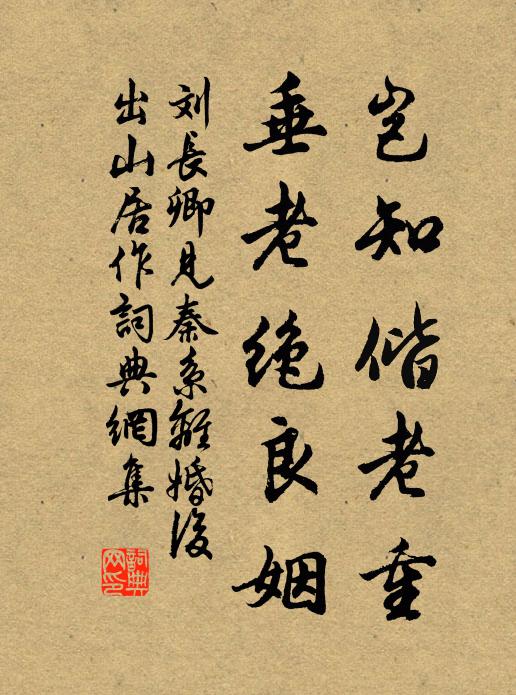 岂知偕老重
垂老绝良姻
刘長卿見秦系離婚後
出山居作詞典網集
詞典网印